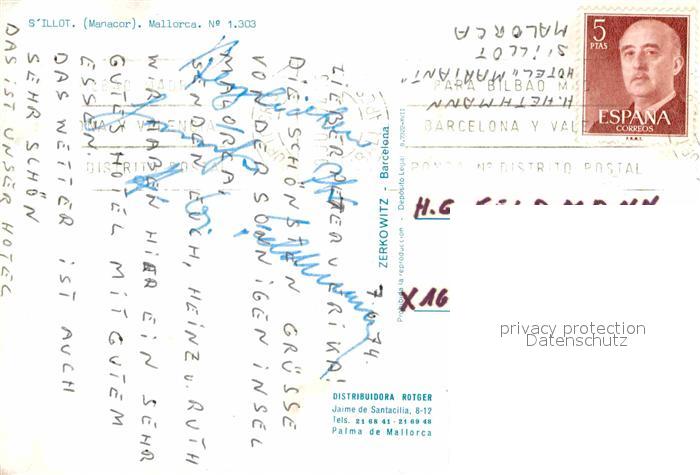 S'ILLOT. (Manacor). Mallorca. Nº 1.303
5
PTAS
ESPAÑA
CORREOS
F.N.M.T.
PARA BILBAO MA
BARCELONA Y VAL
Nº DISTRITO POSTAL
H. HETHMANN
HOTEL „MARIANI"
S'ILLOT
MALORCA
7. 74.
LIEBER PETER U. ERIKA!
DIE SCHÖNSTEN GRÜSSE
VON DER SONNIGEN INSEL
MALORKA,
SENDEN EUCH, HEINZ U. RUTH
WIR HABEN HIER EIN SEHR
GUTES HOTEL MIT GUTEM
ESSEN.
DAS WETTER IST AUCH
SEHR SCHÖN
DAS IST UNSER HOTEL
ZERKOWITZ - Barcelona
Prohibida la reproducción - Depósito Legal
H.G. FELDMANN
X16
privacy protection
Datenschutz
DISTRIBUIDORA ROTGER
Jaime de Santacilia, 8-12
Tels. 21 68 41 - 21 69 48
Palma de Mallorca